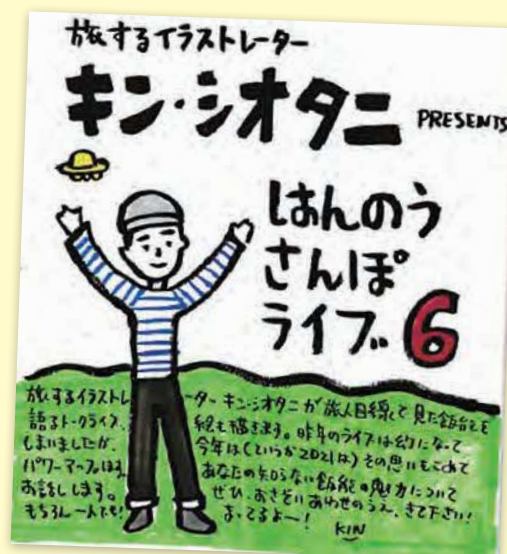 旅するイラストレーター
キン・シオタニ PRESENTS
はんのう
さんぽ
ライブ 6
旅するイラストレーター キン・シオタニが旅人目線で見た飯能を
語るトークライブ。絵も描きます。昨年のライブは幻になって
しまいましたが、今年は(というか2021は)その思いもこめて
パワーアップ あなたの知らない飯能の魅力について
お話しします。ぜひ、おさそいあわせのうえ、きて下さい!
もちろん一人でも! まってるよ〜!
KIN